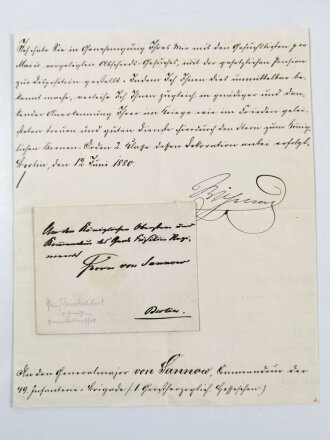 Ich habe Sie in Genehmigung Ihres Mir mit den Gesuchslisten pro
Mai vorgelegten Abschieds-Gesuches, mit der gesetzlichen Pension
zur Disposition gestellt. Indem Ich Ihnen dies unmittelbar be-
kannt mache, verleihe Ich Ihnen zugleich in gnädiger und dan-
kender Anerkennung Ihrer im Kriege wie im Frieden gelei-
steten treuen und guten Dienste hierdurch den Stern zum König-
lichen Kronen-Orden 2. Klasse dessen Dekoration anbei erfolgt.
Berlin, den 12. Juni 1880.
Wilhelm
An den Königlichen Obersten und
Kommandeur des Garde Füsilier Reg-
iments
Herrn von Sannow
Berlin.
An den Generalmajor von Sannow, Commandeur der
49. Infanterie-Brigade (1. Großherzoglich Hessischen.)